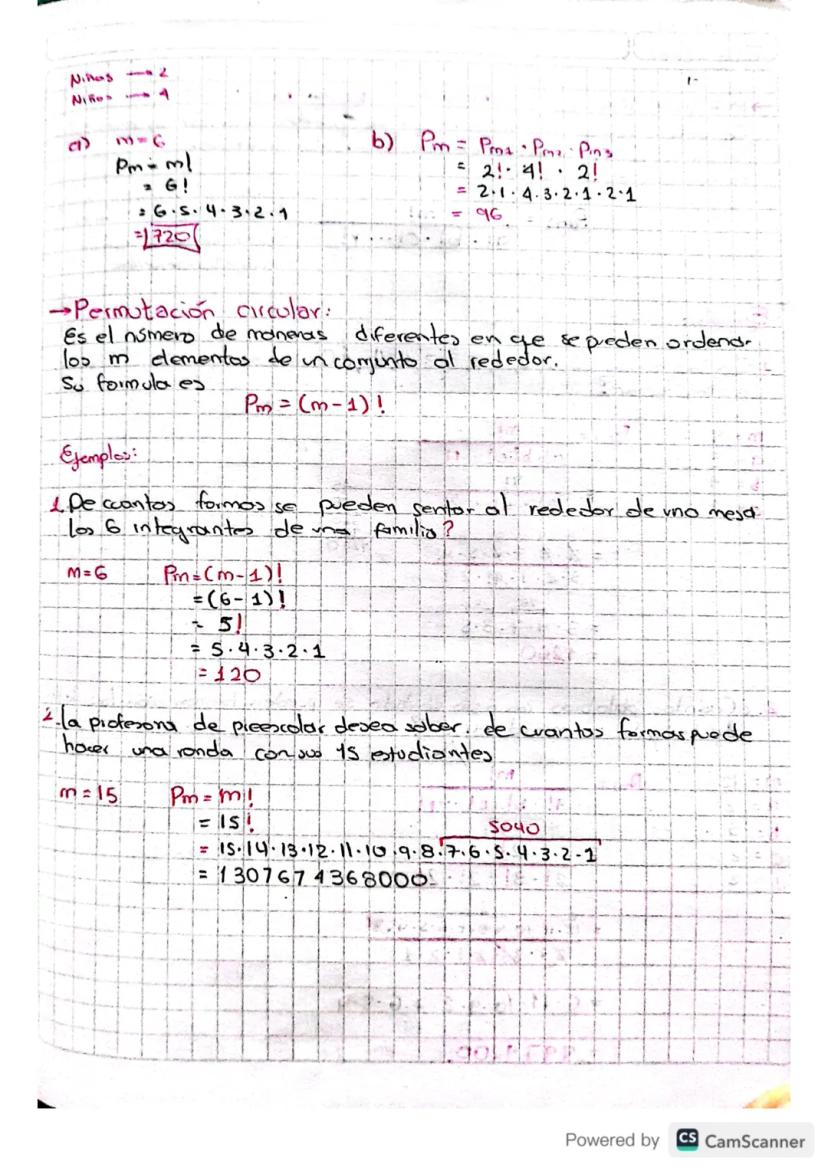 Niñas → 2
Niños → 4
a) m = 6
Pm = m!
= 6!
= 6·5·4·3·2·1
= 720
b) Pm = Pm1 · Pm2 · Pm3
= 2! · 4! · 2!
= 2·1·4·3·2·1·2·1
= 96
→Permutación circular:
Es el número de maneras diferentes en qe se pueden ordenar
los m elementos de un conjunto al rededor.
Su formula es
Pm = (m-1)!
Ejemplos:
1. De cuantas formas se pueden sentar al rededor de una mesa
los 6 integrantes de una familia?
m=6 Pm=(m-1)!
=(6-1)!
= 5!
= 5·4·3·2·1
= 120
2. la profesora de preescolar desea saber. de cuantas formas puede
hacer una ronda con sus 15 estudiantes
m = 15 Pm = m!
= 15!
5040
= 15·14·13·12·11·10·9·8·7·6·5·4·3·2·1
= 1307674368000
Powered by CS CamScanner